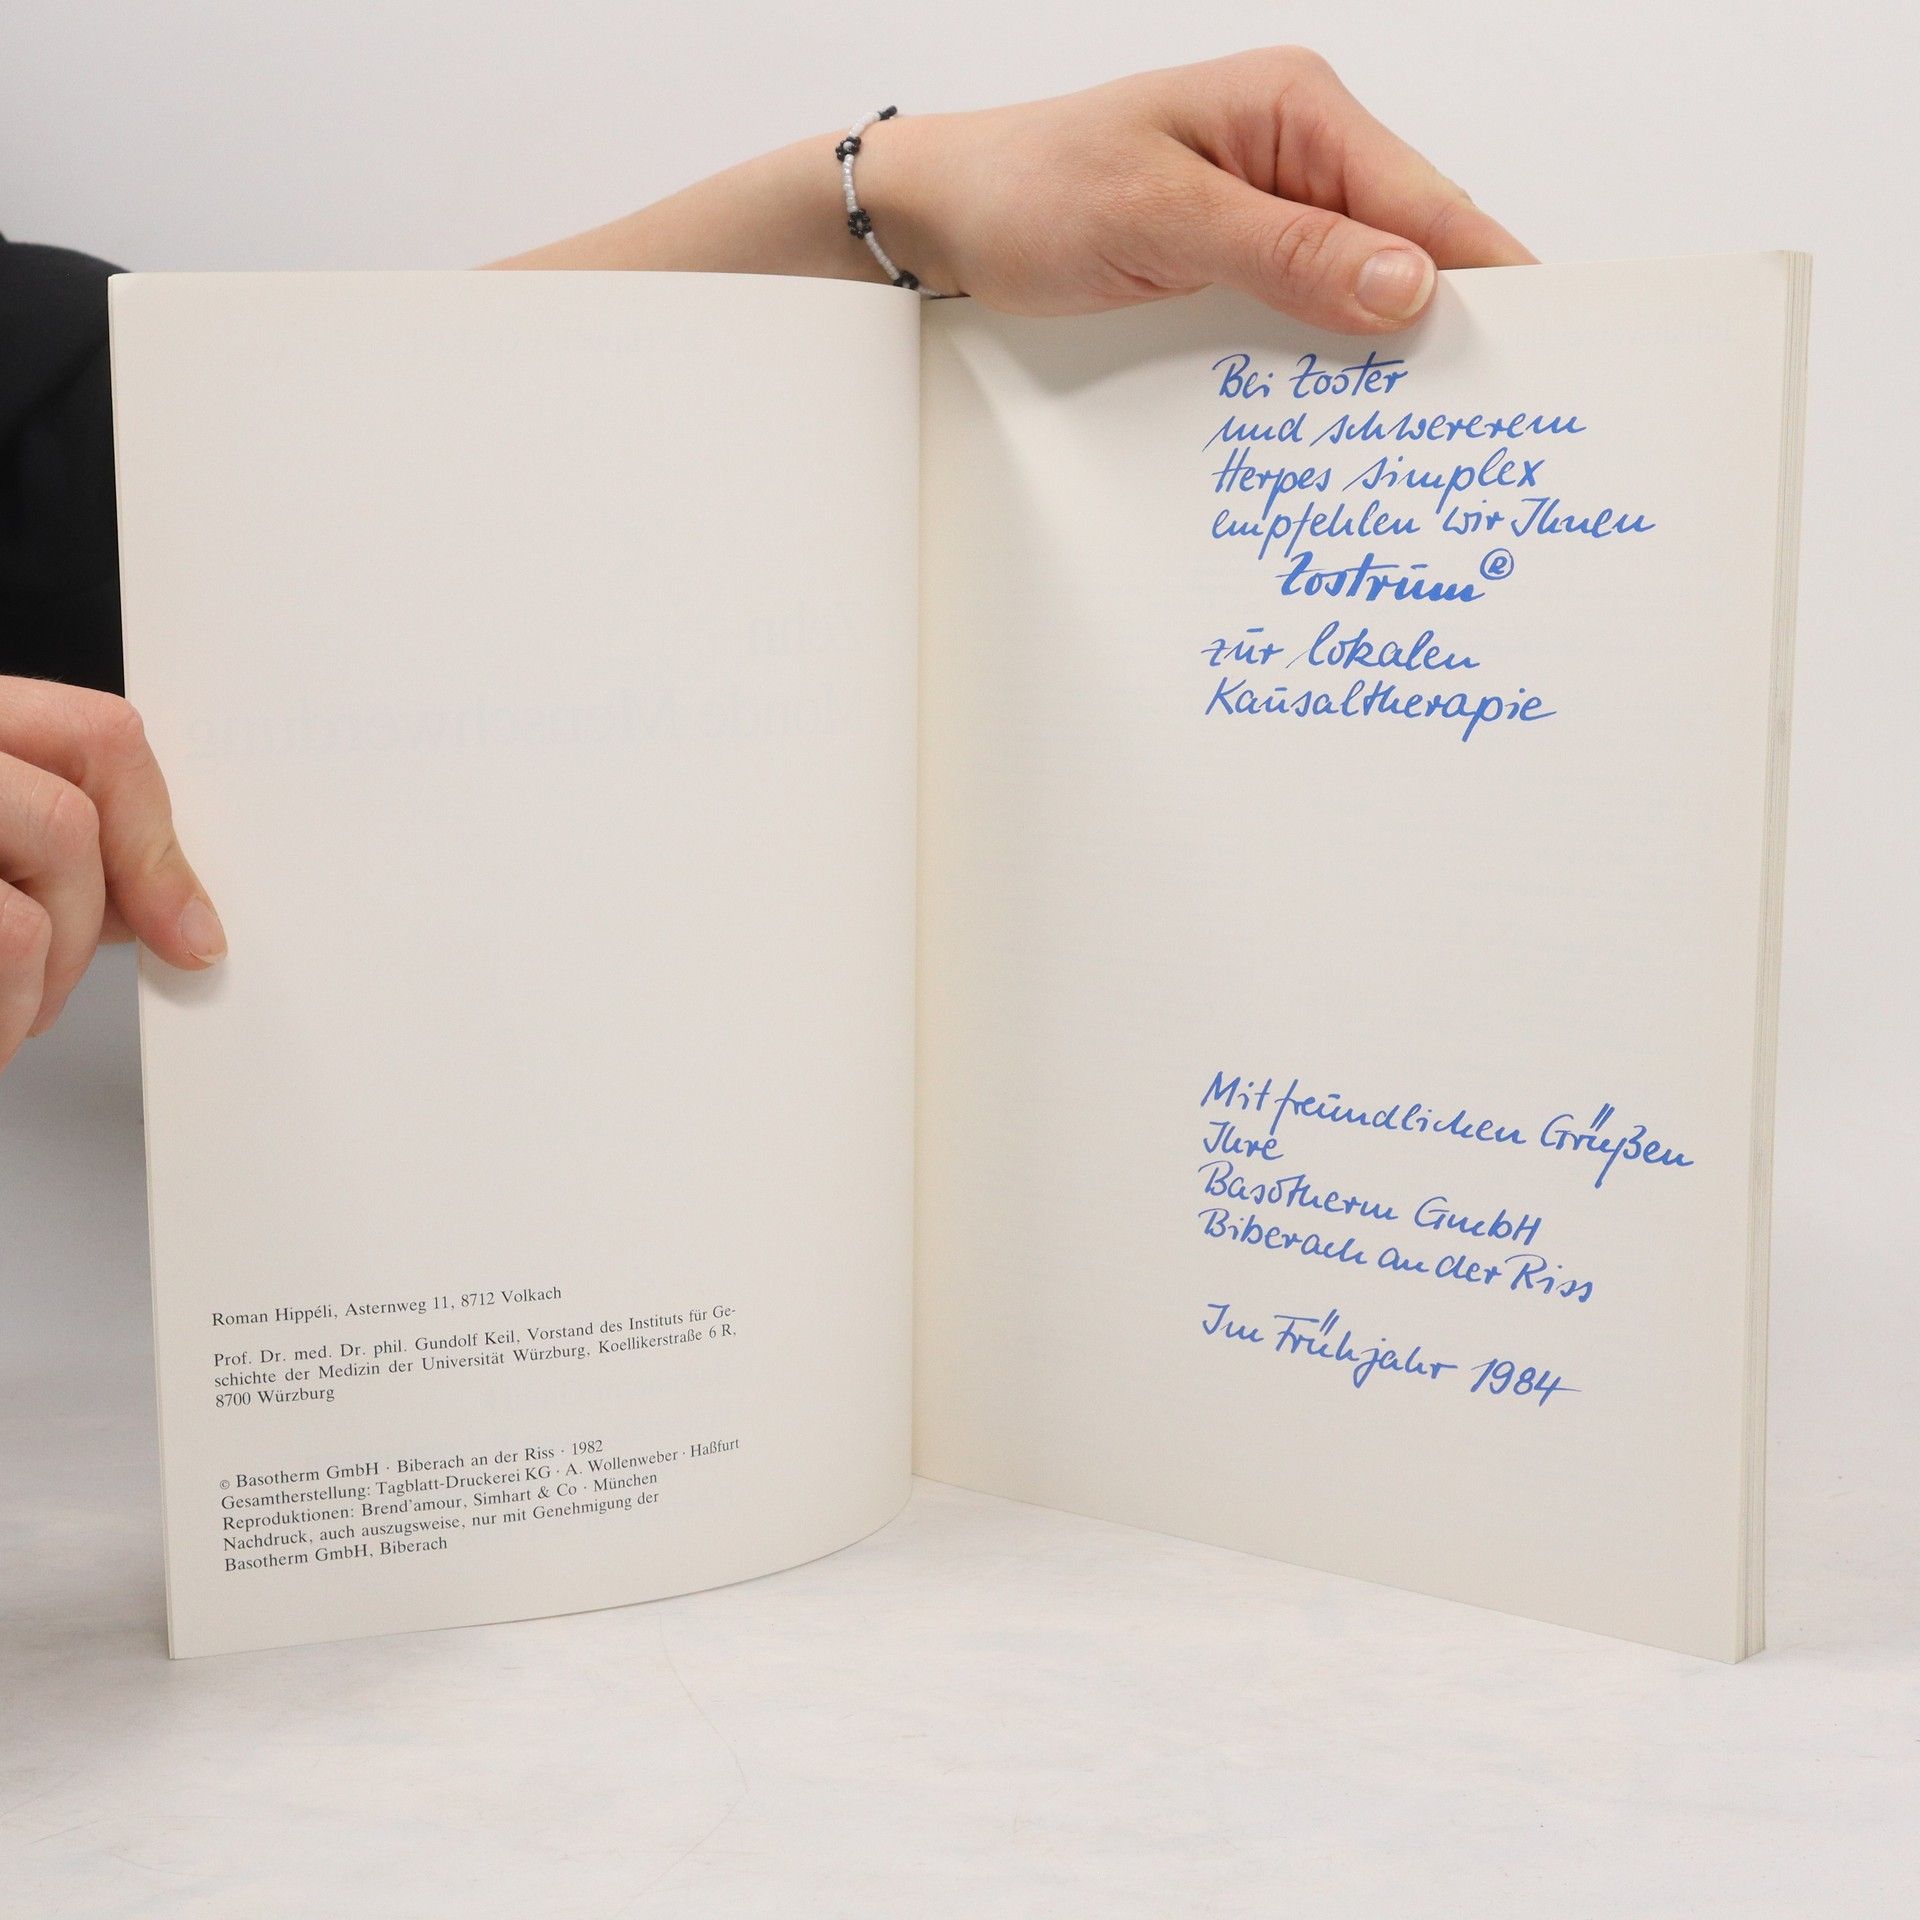 Roman Hippéli, Asternweg 11, 8712 Volkach
Prof. Dr. med. Dr. phil. Gundolf Keil, Vorstand des Instituts für Ge-
schichte der Medizin der Universität Würzburg, Koellikerstraße 6 R,
8700 Würzburg
© Basotherm GmbH · Biberach an der Riss · 1982
Gesamtherstellung: Tagblatt-Druckerei KG · A. Wollenweber · Haßfurt
Reproduktionen: Brend'amour, Simhart & Co · München
Nachdruck, auch auszugsweise, nur mit Genehmigung der
Basotherm GmbH, Biberach
Bei Zoster
und schwererem
Herpes simplex
empfehlen wir Ihnen
Zostrum®
zur lokalen
Kausaltherapie
Mit freundlichen Grüßen
Ihre
Basotherm GmbH
Biberach an der Riss
Im Frühjahr 1984